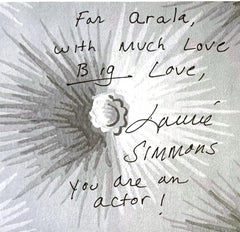 For Arala,
with Much Love
Big Love,
Laurie
SIMMONS
You are an
actor!